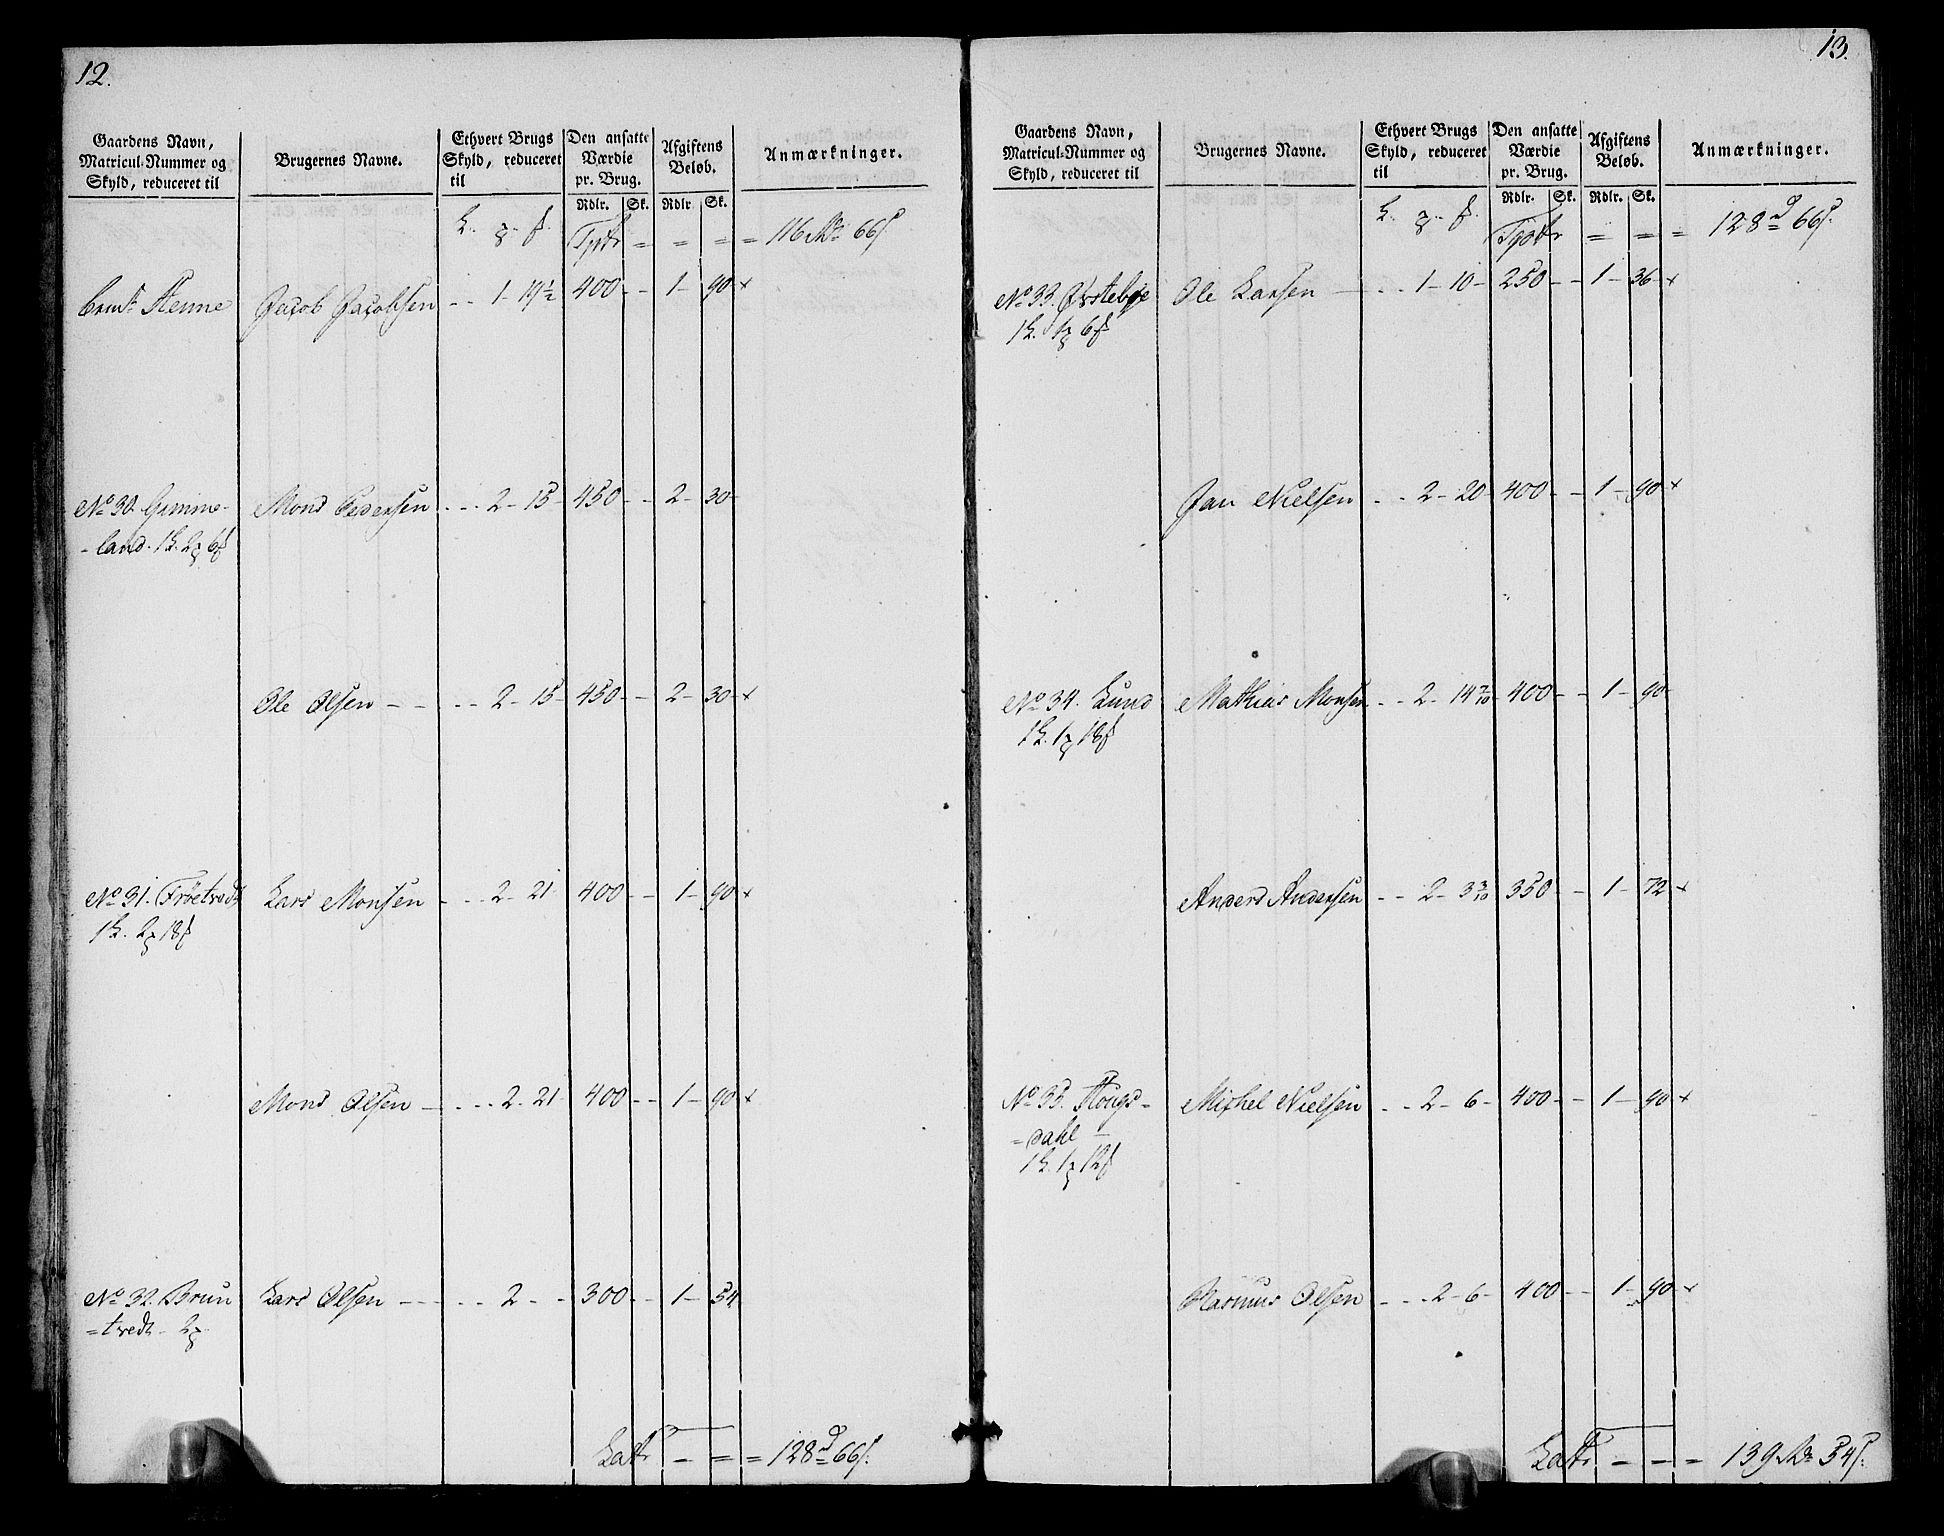 12.
Gaardens Navn, Matricul-Nummer og Skyld, reduceret til
Brugernes Navne.
Ethvert Brugs Skyld, reduceret til
Den ansatte Værdie pr. Brug.
Afgiftens Beløb.
Anmærkninger.
Rdlr. Sk. Rdlr. Sk.
Tptr = = = = 116 Rdr 66 s
Jacob Jacobsen - - 1 - 19 1/2 400 - - 1 - 90 x
No 30. Gimme- Mons Pedersen - - - 2 - 15 - 450 - - 2 - 30 -
- land. 1 2 6
Ole Olsen - - - - - 2 - 15 - 450 - - 2 - 30 - x
No 31. Frøetvedt Lars Monsen - - - 2 - 21 400 - - 1 - 90 x
1 2 18
Mons Olsen - - - - 2 - 21 - 400 - - 1 - 90 x
No 32. Brun Lars Olsen - - - - - 2 - - 300 - - 1 - 54
= tvedt - 2
Latr - = = 128 d 66 s.
13.
Gaardens Navn, Matricul-Nummer og Skyld, reduceret til
Brugernes Navne.
Ethvert Brugs Skyld, reduceret til
Den ansatte Værdie pr. Brug.
Afgiftens Beløb.
Anmærkninger.
Rdlr. Sk. Rdlr. Sk.
Tptr = = = 128 d 66 s.
No 33. Ørstebøe Ole Larsen - - - 1 - 10 - 250 - - 1 - 36 - x
1 1 6
Jan Nielsen - - 2 - 20 - 400 - - 1 - 90 x
No 34. Lund Mathias Monsen - - 2 - 14 7/10 400 - - 1 - 90 -
1 1 18
Anders Andersen - - 2 - 3 3/10 350 - - 1 - 72 x
No 35. Hougs- Michel Nielsen - - 2 - 6 - 400 - - 1 - 90 x
= dahl -
1 1 12
Rasmus Olsen - - - 2 - 6 - 400 - - 1 - 90 x
Latr - - = 139 Rdr 54 s.